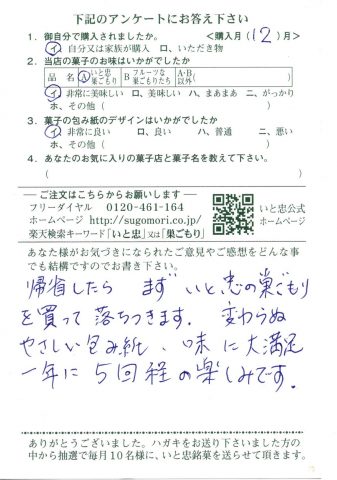 下記のアンケートにお答え下さい
1. 御自分で購入されましたか。 <購入月(12)月>
イ、自分又は家族が購入 ロ、いただき物
2. 当店の菓子のお味はいかがでしたか
品名 Aいと忠巣ごもり Bフルーツな巣ごもりたち A・B以外( )
イ、非常に美味しい ロ、美味しい ハ、まあまあ ニ、がっかり
ホ、その他( )
3. 菓子の包み紙のデザインはいかがでしたか
イ、非常に良い ロ、良い ハ、普通 ニ、悪い
ホ、その他( )
4. あなたのお気に入りの菓子店と菓子名を教えて下さい。
( )
ご注文はこちらからお願いします
フリーダイヤル 0120-461-164
ホームページ http://sugomori.co.jp/
楽天検索キーワード「いと忠」又は「巣ごもり」
いと忠公式
ホームページ
あなた様がお気づきになられたご意見やご感想をどんな事
でも結構ですのでお書き下さい。
帰省したら まず いと忠の巣ごもり
を買って落ちつきます。 変わらぬ
やさしい包み紙、味に大満足
一年に5回程の楽しみです。
ありがとうございました。ハガキをお送り下さいました方の
中から抽選で毎月10名様に、いと忠銘菓を送らせて頂きます。